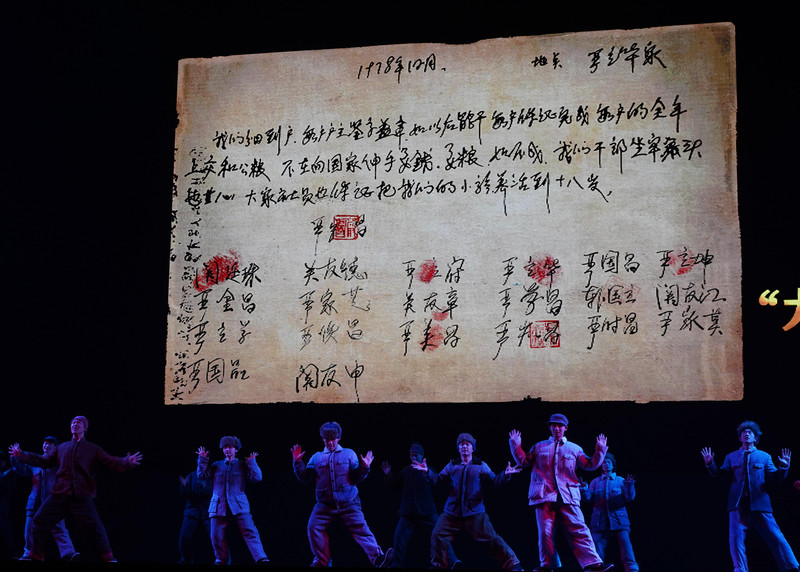 1978年12月. 地点 严立华家
我们分田到户 每户户主签字盖章 如以后能干 每户保证完成每户的全年
上交和公粮 不在向国家伸手要钱要粮 如不成 我们干部坐牢杀头
也甘心 大家社员也保证把我们的小孩养活到十八岁。
严宏昌
关廷珠 关友德 严立符 严立华 严国昌 严立坤
严金昌 严家芝 关友章 严学昌 韩国云 关友江
严立学 严俊昌 严美昌 严付昌 严家其
严国品 关友申
“大